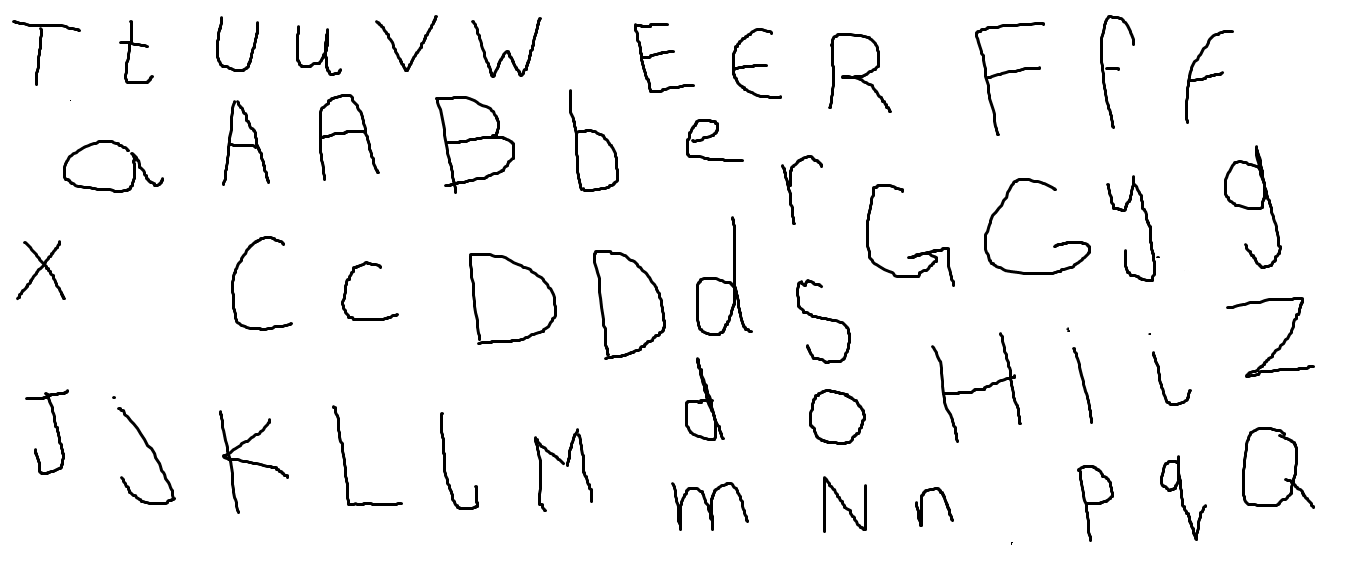 T t U u V W E E R F f f
a A A B b e r G G y g
X C c D D d S H i i Z
J j K L l M d O p q Q
m N n